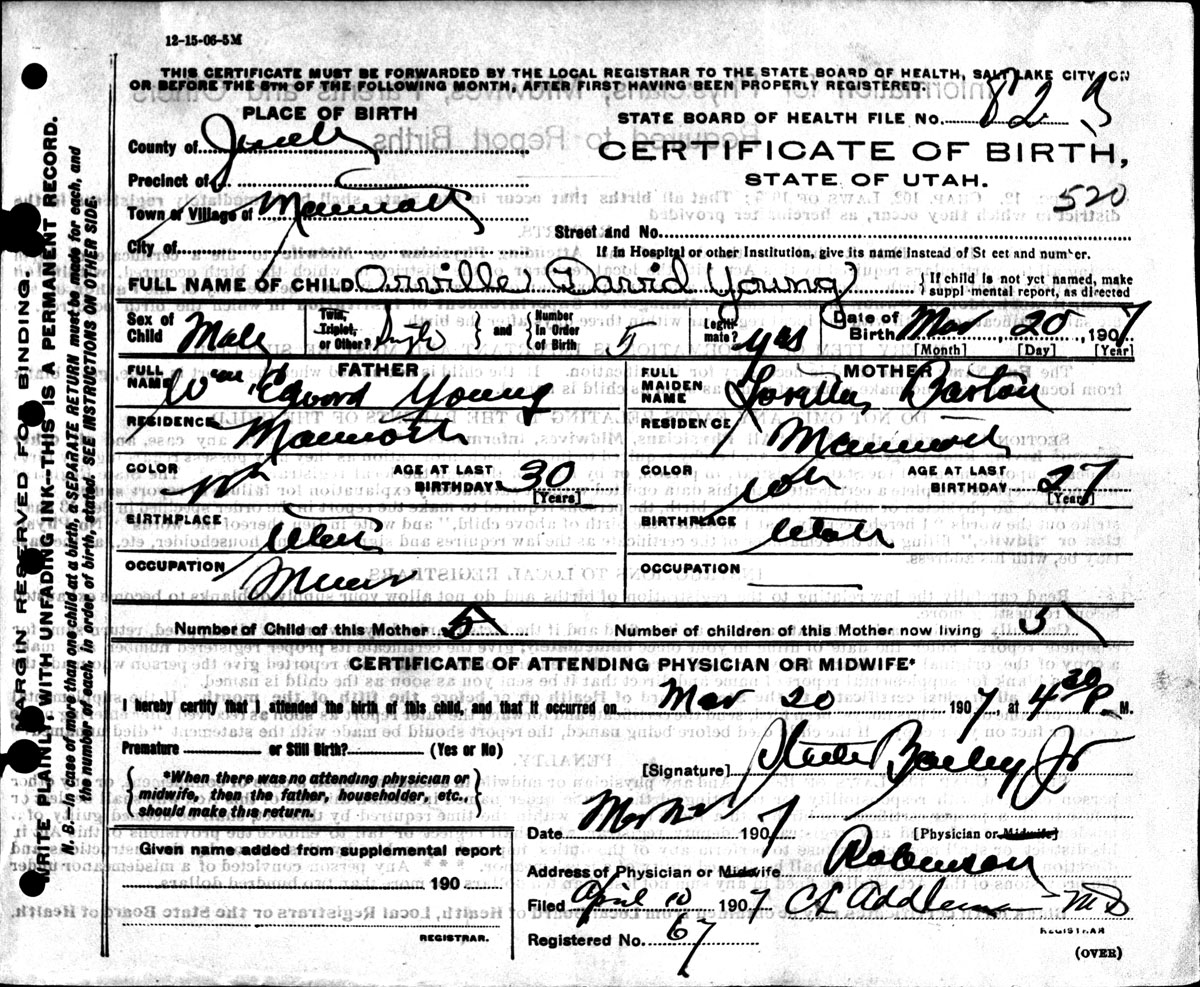 12-15-06-5M
THIS CERTIFICATE MUST BE FORWARDED BY THE LOCAL REGISTRAR TO THE STATE BOARD OF HEALTH, SALT LAKE CITY, ON
OR BEFORE THE 5TH OF THE FOLLOWING MONTH, AFTER FIRST HAVING BEEN PROPERLY REGISTERED.
PLACE OF BIRTH
STATE BOARD OF HEALTH FILE No. 823
County of Juab
CERTIFICATE OF BIRTH,
STATE OF UTAH.
520
Precinct of
Town or Village of Mammoth
Street and No.
City of
If in Hospital or other Institution, give its name instead of St eet and number.
FULL NAME OF CHILD Orville David Young { If child is not yet named, make
suppl mental report, as directed
Sex of Child Male Twin, Triplet, or Other? Single } and { Number in Order of Birth 5 Legitimate? yes Date of Birth Mar 20, 1907
[Month] [Day] [Year]
FATHER
FULL NAME Wm Edward Young
MOTHER
FULL MAIDEN NAME Barton
RESIDENCE Mammoth
RESIDENCE Mammoth
COLOR W AGE AT LAST BIRTHDAY 30 [Years]
COLOR Wh AGE AT LAST BIRTHDAY 27 [Years]
BIRTHPLACE Utah
BIRTHPLACE Utah
OCCUPATION Miner
OCCUPATION
Number of Child of this Mother 5 Number of children of this Mother now living 5
CERTIFICATE OF ATTENDING PHYSICIAN OR MIDWIFE*
I hereby certify that I attended the birth of this child, and that it occurred on Mar 20 1907, at 4 30 P. M.
Premature or Still Birth? (Yes or No)
[Signature] Steele Bailey Jr
{ *When there was no attending physician or
midwife, then the father, householder, etc.,
should make this return. }
Date 1907 [Physician or Midwife]
Given name added from supplemental report
190
Address of Physician or Midwife Robinson
Filed April 10 1907 M D
REGISTRAR.
REGISTRAR
Registered No. 67
(OVER)
MARGIN RESERVED FOR BINDING.
WRITE PLAINLY, WITH UNFADING INK—THIS IS A PERMANENT RECORD.
N. B.—In case of more than one child at a birth, a SEPARATE RETURN must be made for each, and
the number of each, in order of birth, stated. SEE INSTRUCTIONS ON OTHER SIDE.